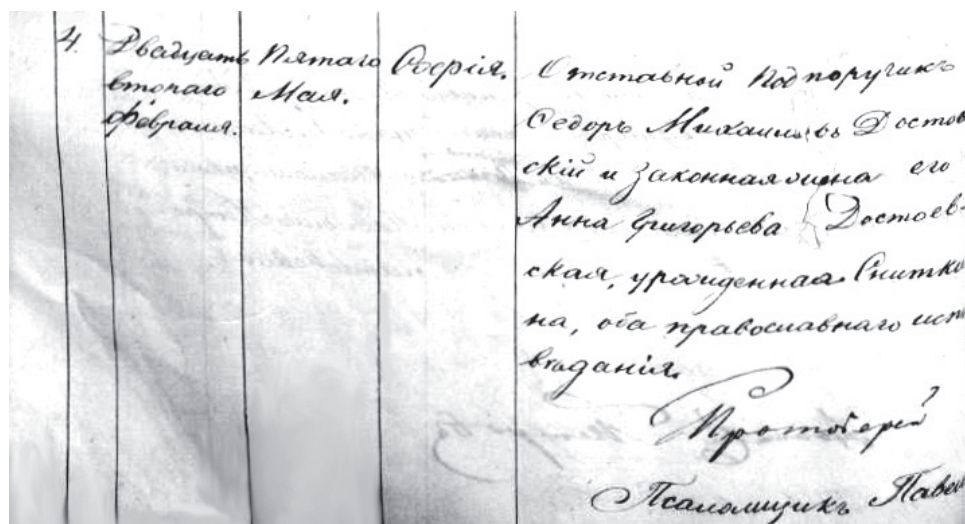 4. Двадцать Пятаго Софія. Отставной Подпоручикъ
втораго Мая. Ѳедоръ Михайловъ Достоев
февраля. скій и законная жена его
Анна Григорьева Достоев-
ская, урожденная Снитки
на, оба православнаго исп
вѣданія.
Протоіерей
Псаломщикъ Павел